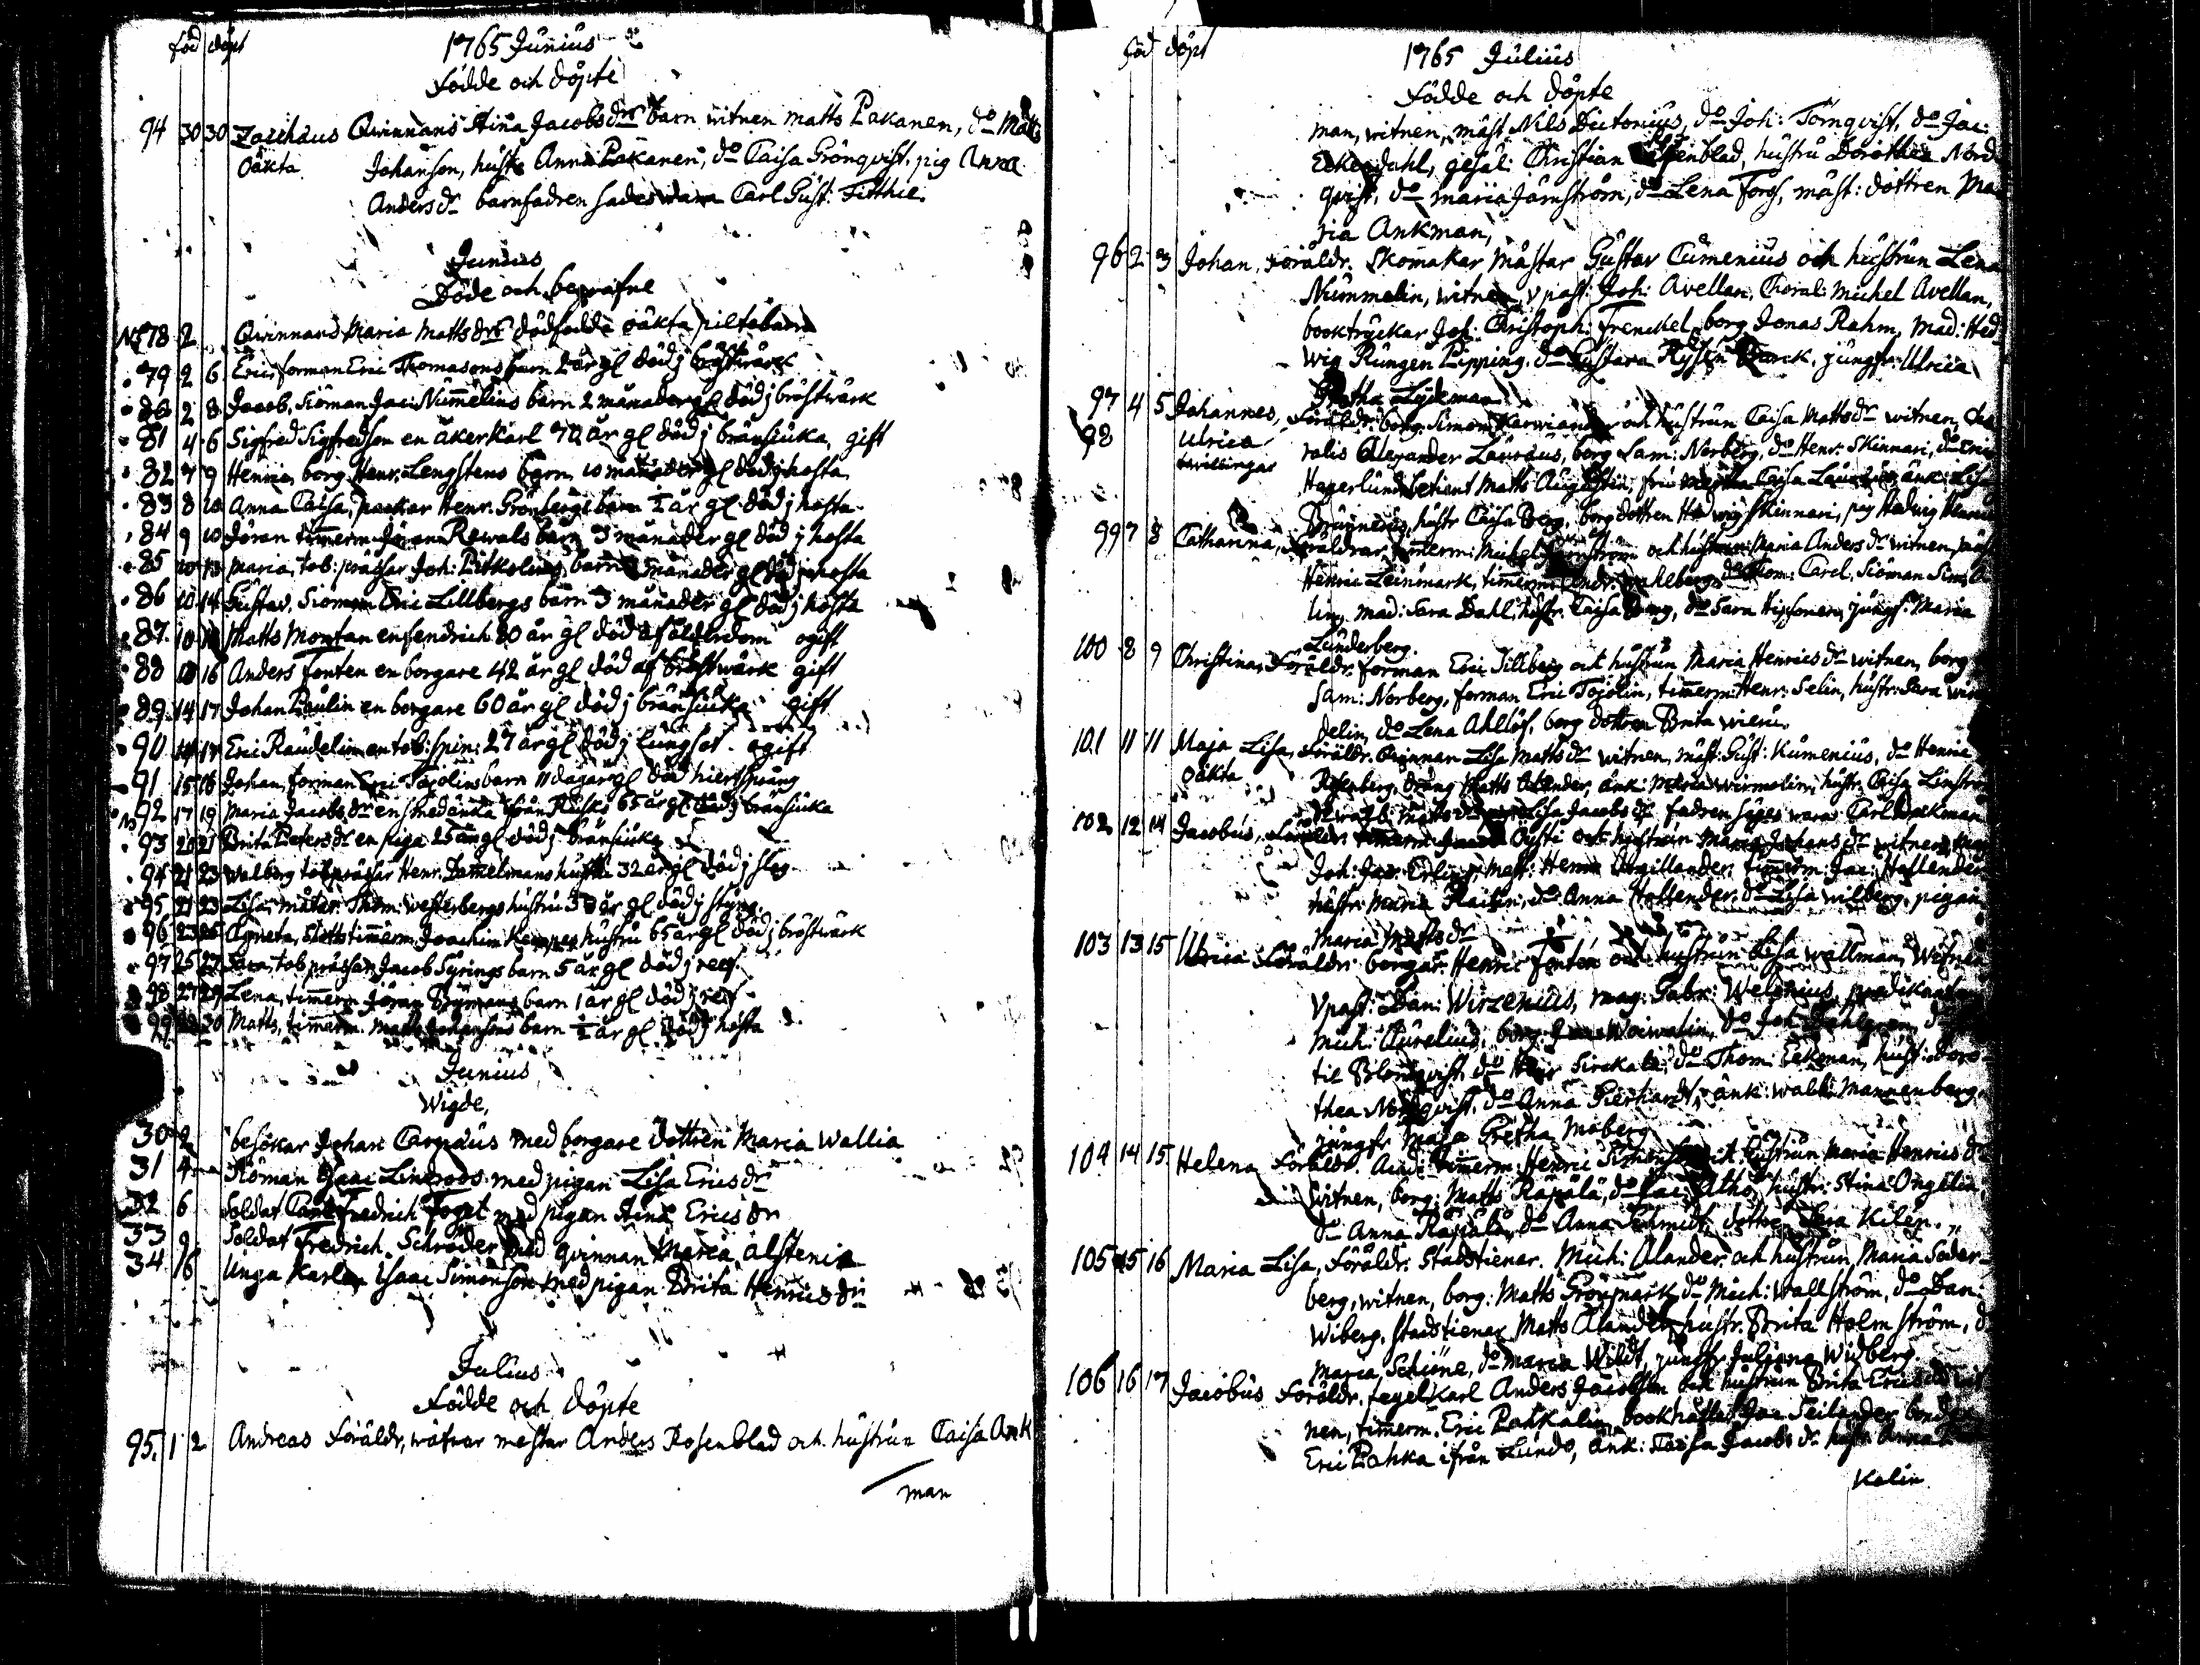 föd döpt
1765 Junius
Födde och döpte
94 30 30 Zachäus Qvinnans Stina Jacobs drs barn witnen Matts Pakanen, do Matts
oäkta Johanson, hustr Anna Pakanen, do Caisa Grönqvist, pig Anna
Anders dr barnfadren sades wara Carl Gust. Fitthie.
Junius
Döde och begrafne
No 78 2 Qvinnans Maria Matts drs dödfödde oäkta piltebarn
79 2 6 Eric, forman Eric Thomasons barn 2 år gl död j bröstwärk
80 2 8 Jacob, Siöman Jac: Nummelins barn 2 månader gl död j bröstwärk
81 4 6 Sigfred Sigfredson en åkerkarl 70 år gl död j bränsiuka, gift
82 7 9 Henric, borg Henr: Lengstens barn 10 månader gl död j hosta
83 8 10 Anna Caisa, packar Henr. Grönbergs barn ½ år gl. död j hosta.
84 9 10 Jöran timerm Jöran Rewals barn 3 månader gl död j hosta
85 10 13 Maria, tob: prässar Joh: Pitkolins barn månader gl död j hosta
86 10 14 Gustav, Siöman Eric Lillbergs barn 3 månader gl död j hosta
87 10 Matts Montan en fendrich 80 år gl död af ålderdom ogift
88 16 Anders Fonten en borgare 42 år gl död af bröstwärk gift
89 14 17 Johan Paulin en borgare 60 år gl död j bränsiuka gift
90 14 17 Eric Raudelin en tob: spin: 27 år gl död j lungsot. ogift
91 15 16 Johan, forman Eric Tojolins barn 11 dagar gl död hiertsprång
92 17 19 Maria Jacobs dr en änka från 65 år gl död j bränsiuka
93 20 21 Brita Peters dr en piga 25 år gl död j bränsiuka
94 21 23 Walborg tobprässar Henr. hustru 32 år gl död j slag
95 21 23 Lisa, mäster Thom: Westerbergs hustru 38 år gl död j styng.
96 23 25 Agneta, Slotts timerm Joachim Kempes hustru 65 år gl död j bröstwärk
97 25 27 Sara, tob prässar Jacob Syrings barn 5 år gl död j
98 27 29 Lena, timerm Jöran Brymans barn 1 år gl död j
99 30 Matts, timerm Matts Johansons barn ½ år gl död j hosta
Junius
Wigde,
30 2 besökar Johan Carpäus med borgare dottren Maria Wallia
31 4 Siöman Isaac Lindroos med pigan Lisa Erics dr
32 6 Soldat Carl Fredrich Foget med pigan Stina Erics dr
33 9 Soldat Fredrich Schröder med qvinnan Maria Alstenia
34 16 Unga Karlen Isaac Simonson med pigan Brita Henrics dr
Julius
Födde och döpte
95. 1 2 Andreas Föräldr, wäfvar mestar Anders Rosenblad och hustrun Caisa Ank
man
föd döpt
1765 Julius
Födde och döpte
man, witnen, mäst Nils Dictonius, do Joh: Törnqvist, do Jac:
Eckendahl, gesäl: Christian hustru Dorothea Nord
qvist, do Maria Järnström, do Lena Fors, mäst: dottren Ma
ria Ankman,
96 2 3 Johan, Föräldr. Skomakar Mästar Gustav Cumenius och hustrun Lena
Nummelin, witnen, v past: Joh: Avellan, Choral: Michel Avellan,
booktryckar Joh: Christoph: Frenckel, borg Jonas Rahm, Mad: Hed
wig Rungen Pipping. do Gustava jungfr: Ulrica
Gretha Lydeman.
97 4 5 Johannes, Föräldr. borg. Simon Karwiander och hustrun Caisa Matts dr witnen, Cho
98 Ulrica ralis Alexander Lauräus, borg Sam: Norberg, do Henr: Skinnari, do Eric
twillingar Hagerlund, betient Matts Augustin, fru Caisa änk: Lisa
hustr Caisa Berg, borg dottren Hedwig Skinnari, pig Hedwig
99 7 8 Catharina, Föräldrar, timerm: Michel och hustrun Maria Anders dr witnen, mäst
Henric Leinmark, timerm Andr: Wahlberg, do Thom: Carel, Siöman Sim:
lin, Mad: Sara Dahl, hustr. Caisa do Sara jungf: Maria
Lunderberg.
100 8 9 Christina, Föräldr. forman Eric Tillberg och hustrun Maria Henrics dr witnen, borg
Sam: Norberg, forman Eric Tojolin, timerm: Henr: Selin, hustr: Sara Win
delin, do Lena Ahllöf, borg dottren Brita
101 11 11 Maja Lisa, Föräldr. Qvinnan Lisa Matts dr witnen, mäst: Gust: Kumenius, do Henric
oäkta Rosenberg, dräng Matts Alander, änk: Maria Wirmelin, hustr. Caisa Linstr
Walb: Matts dr Lisa Jacobs dr fadren säges wara Carl
102 12 14 Jacobus, Föräldr. timerm Jacob och hustrun Maria Johans dr witnen,
Joh: Jac: Erling mäst: Henric Argillander, timerm: Jac: Hollender
hustr: Maria do Anna Hollender, do Lisa Wilberg, pigan
Maria Matts dr
103 13 15 Ulrica Föräldr: borgar: Henric Fontén och hustrun Lisa Wallman, Witnen
v past: Dan: Wirzenius, mag: Gabr: Welonius, predikant
Mich: Aurelius, borg: do Joh: Dahlgren, do
til Blomqvist, do Henr Sirckala, do Thom: Eekman, hust: Doro
thea Nordqvist, do Anna Gierhardt, änk: Walb: Mannenberg,
jungfr Maja Gretha Moberg
104 14 15 Helena Föräldr. timerm Henric och hustrun Maria Henrics dr
witnen, borg: Matts Räpälä, do Jac: Alho, hustr: Stina Ongelin
do Anna Räpälä, do Anna Schmidt, dottr. Lisa Kilén.
105 15 16 Maria Lisa, Föräldr. Stadstienar. Mich: Alander och hustrun Maria Söder
berg, witnen, borg: Matts Grönmark, do Mich: Wallström, do Dan:
Wiberg, Stadstienar Matts Alander, hustr. Brita Holmström, do
Maria Schiöne, do Maria Wildt, jungfr Juliana Widberg
106 16 17 Jacobus Föräldr. tegelkarl Anders Jacobson och hustrun Brita Erics dr wit
nen, timerm: Eric Pahkalin, bookhållar Jac Seilander, bonden
Eric Pahka ifrån Lundo, änk: Caisa Jacobs dr hustr Anna
kalin